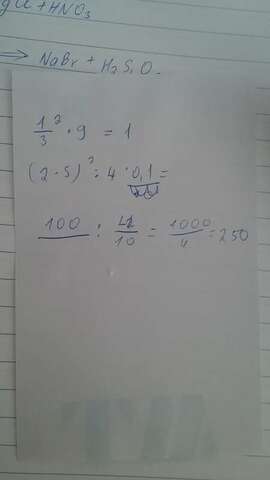 + HNO₃
⟹ NaBr + H₂S.O.
1/3 ² · 9 = 1
(2 · 5)² : 4 · 0,1 =
100 : 4/10 = 1000/4 = 250